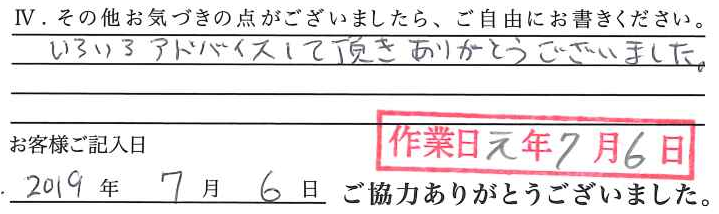 Ⅳ．その他お気づきの点がございましたら、ご自由にお書きください。
いろいろアドバイスして頂きありがとうございました。
作業日元年7月6日
お客様ご記入日
2019年7月6日 ご協力ありがとうございました。